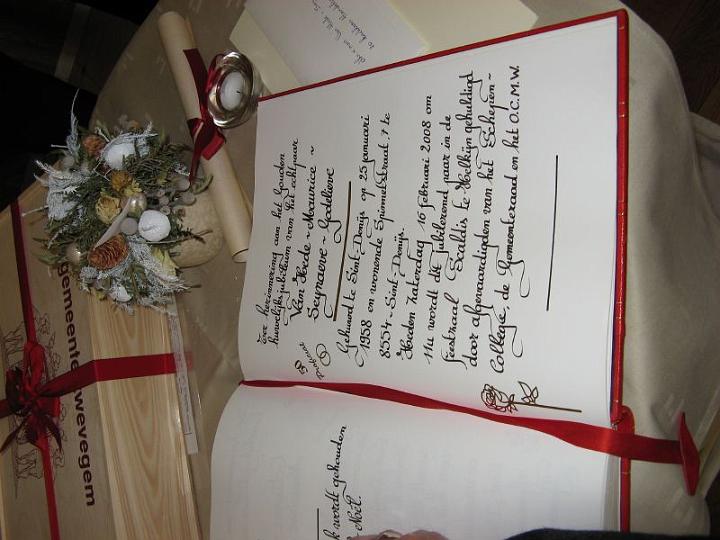 ter herinnering aan het Gouden
huwelijksjubileum van het echtpaar
Van Hoide - Maurice ~
Seynaeve - Godelieve
Gehuwd te Sint-Denijs op 25 januari
1958 en wonende Spinnelstraat 7 te
8554 - Sint-Denijs.
Heden zaterdag 16 februari 2008 om
11u wordt dit jubilerend paar in de
feestzaal Scaldis te Helkijn gehuldigd
door afgevaardigden van het Schepen-
College, de Gemeenteraad en het O.C.M.W.
50
wordt gehouden
gemeente wevegem